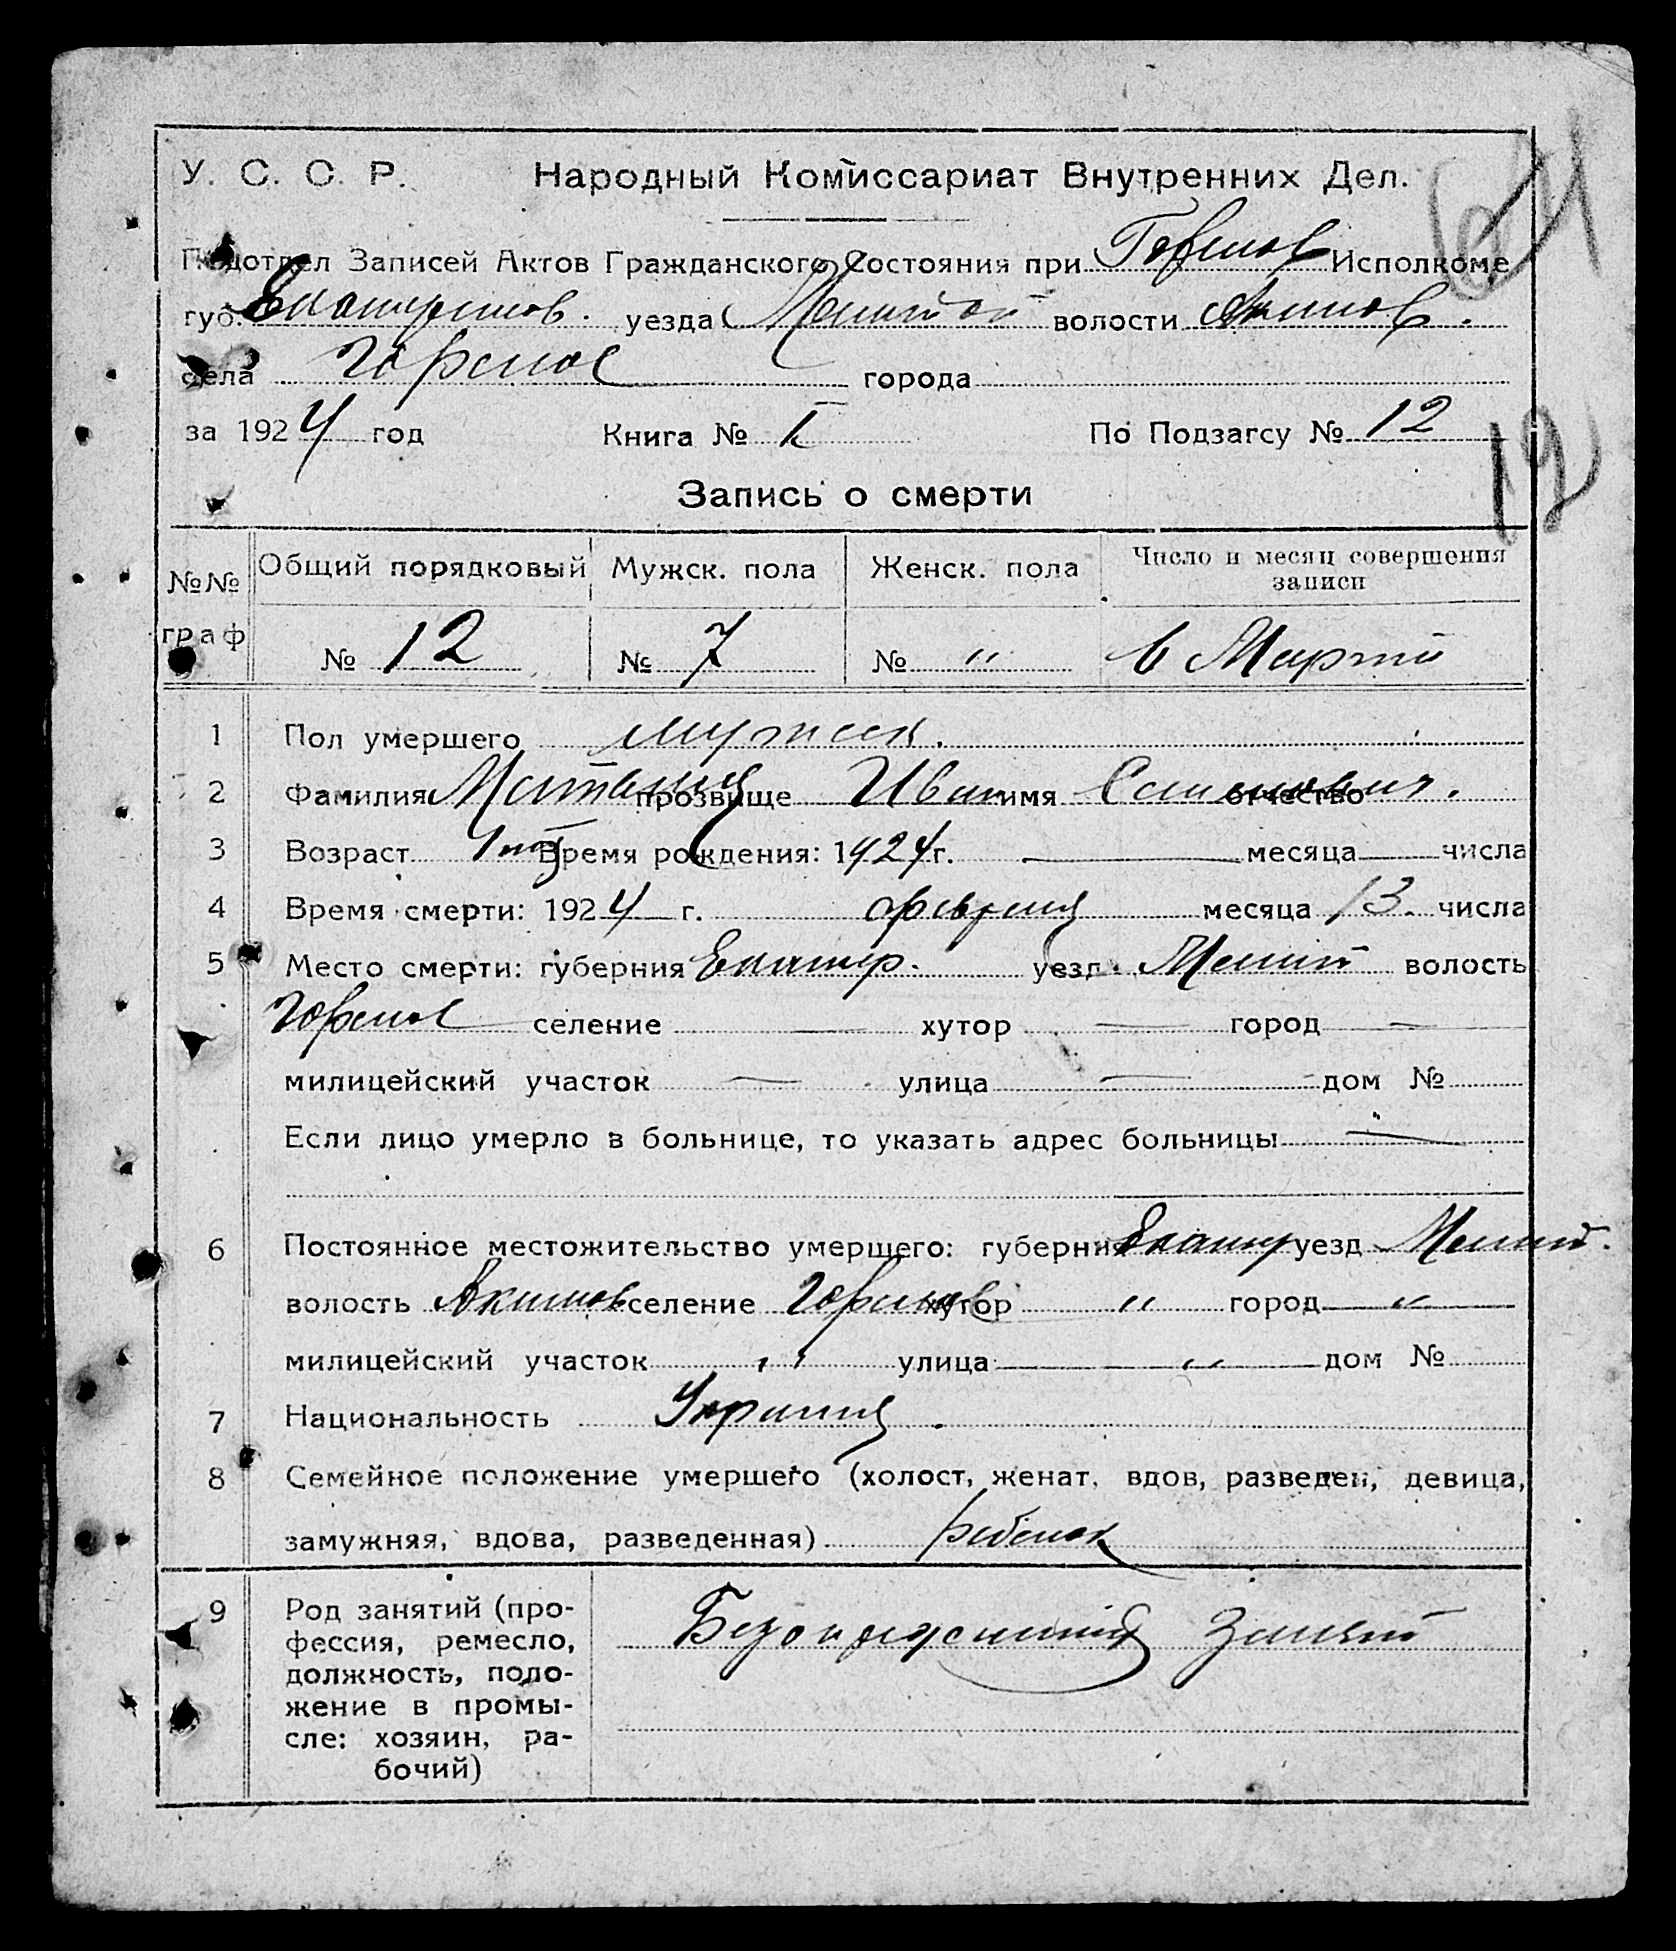 У. С. С. Р. Народный Комиссариат Внутренних Дел.
Подотдел Записей Актов Гражданского Состояния при Горелов Исполкоме
губ. Екатеринов. уезда Мелитоп волости Акимов.
села Горелое города
за 1924 год Книга № I По Подзагсу № 12
12
Запись о смерти
№№ граф Общий порядковый Мужск. пола Женск. пола Число и месяц совершения
записи
№ 12 № 7 № " 6 Марта
1 Пол умершего мужск.
2 Фамилия прозвище Иван имя отчество
3 Возраст Время рождения: 1924 г. — месяца числа
4 Время смерти: 1924 г. февраля месяца 13. числа
5 Место смерти: губерния Екатер. уезд Мелит волость
Горелое селение — хутор — город —
милицейский участок — улица — дом №
Если лицо умерло в больнице, то указать адрес больницы —
6 Постоянное местожительство умершего: губерния Екатер уезд Мелит.
волость Акимов селение Горелое хутор " город "
милицейский участок " улица " дом №
7 Национальность
8 Семейное положение умершего (холост, женат, вдов, разведен, девица,
замужняя, вдова, разведенная) ребенок
9 Род занятий (про-
фессия, ремесло,
должность, поло-
жение в промы-
сле: хозяин, ра-
бочий)
занят